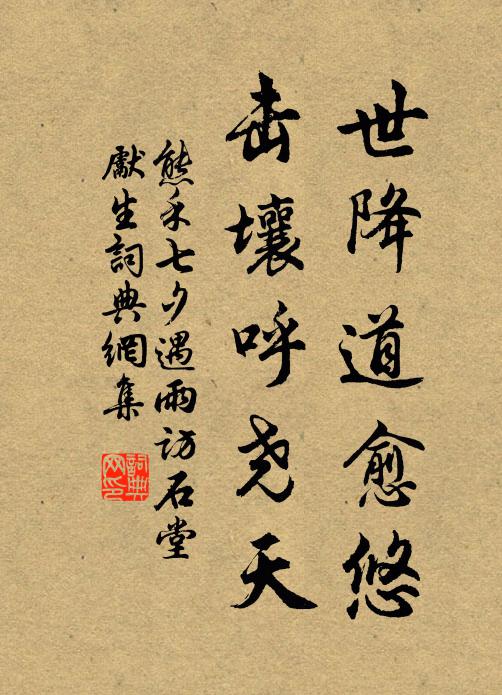 世降道愈悠
击壤呼尧天
熊禾七夕遇雨访石堂
獻生詞典網集
詞典
网印